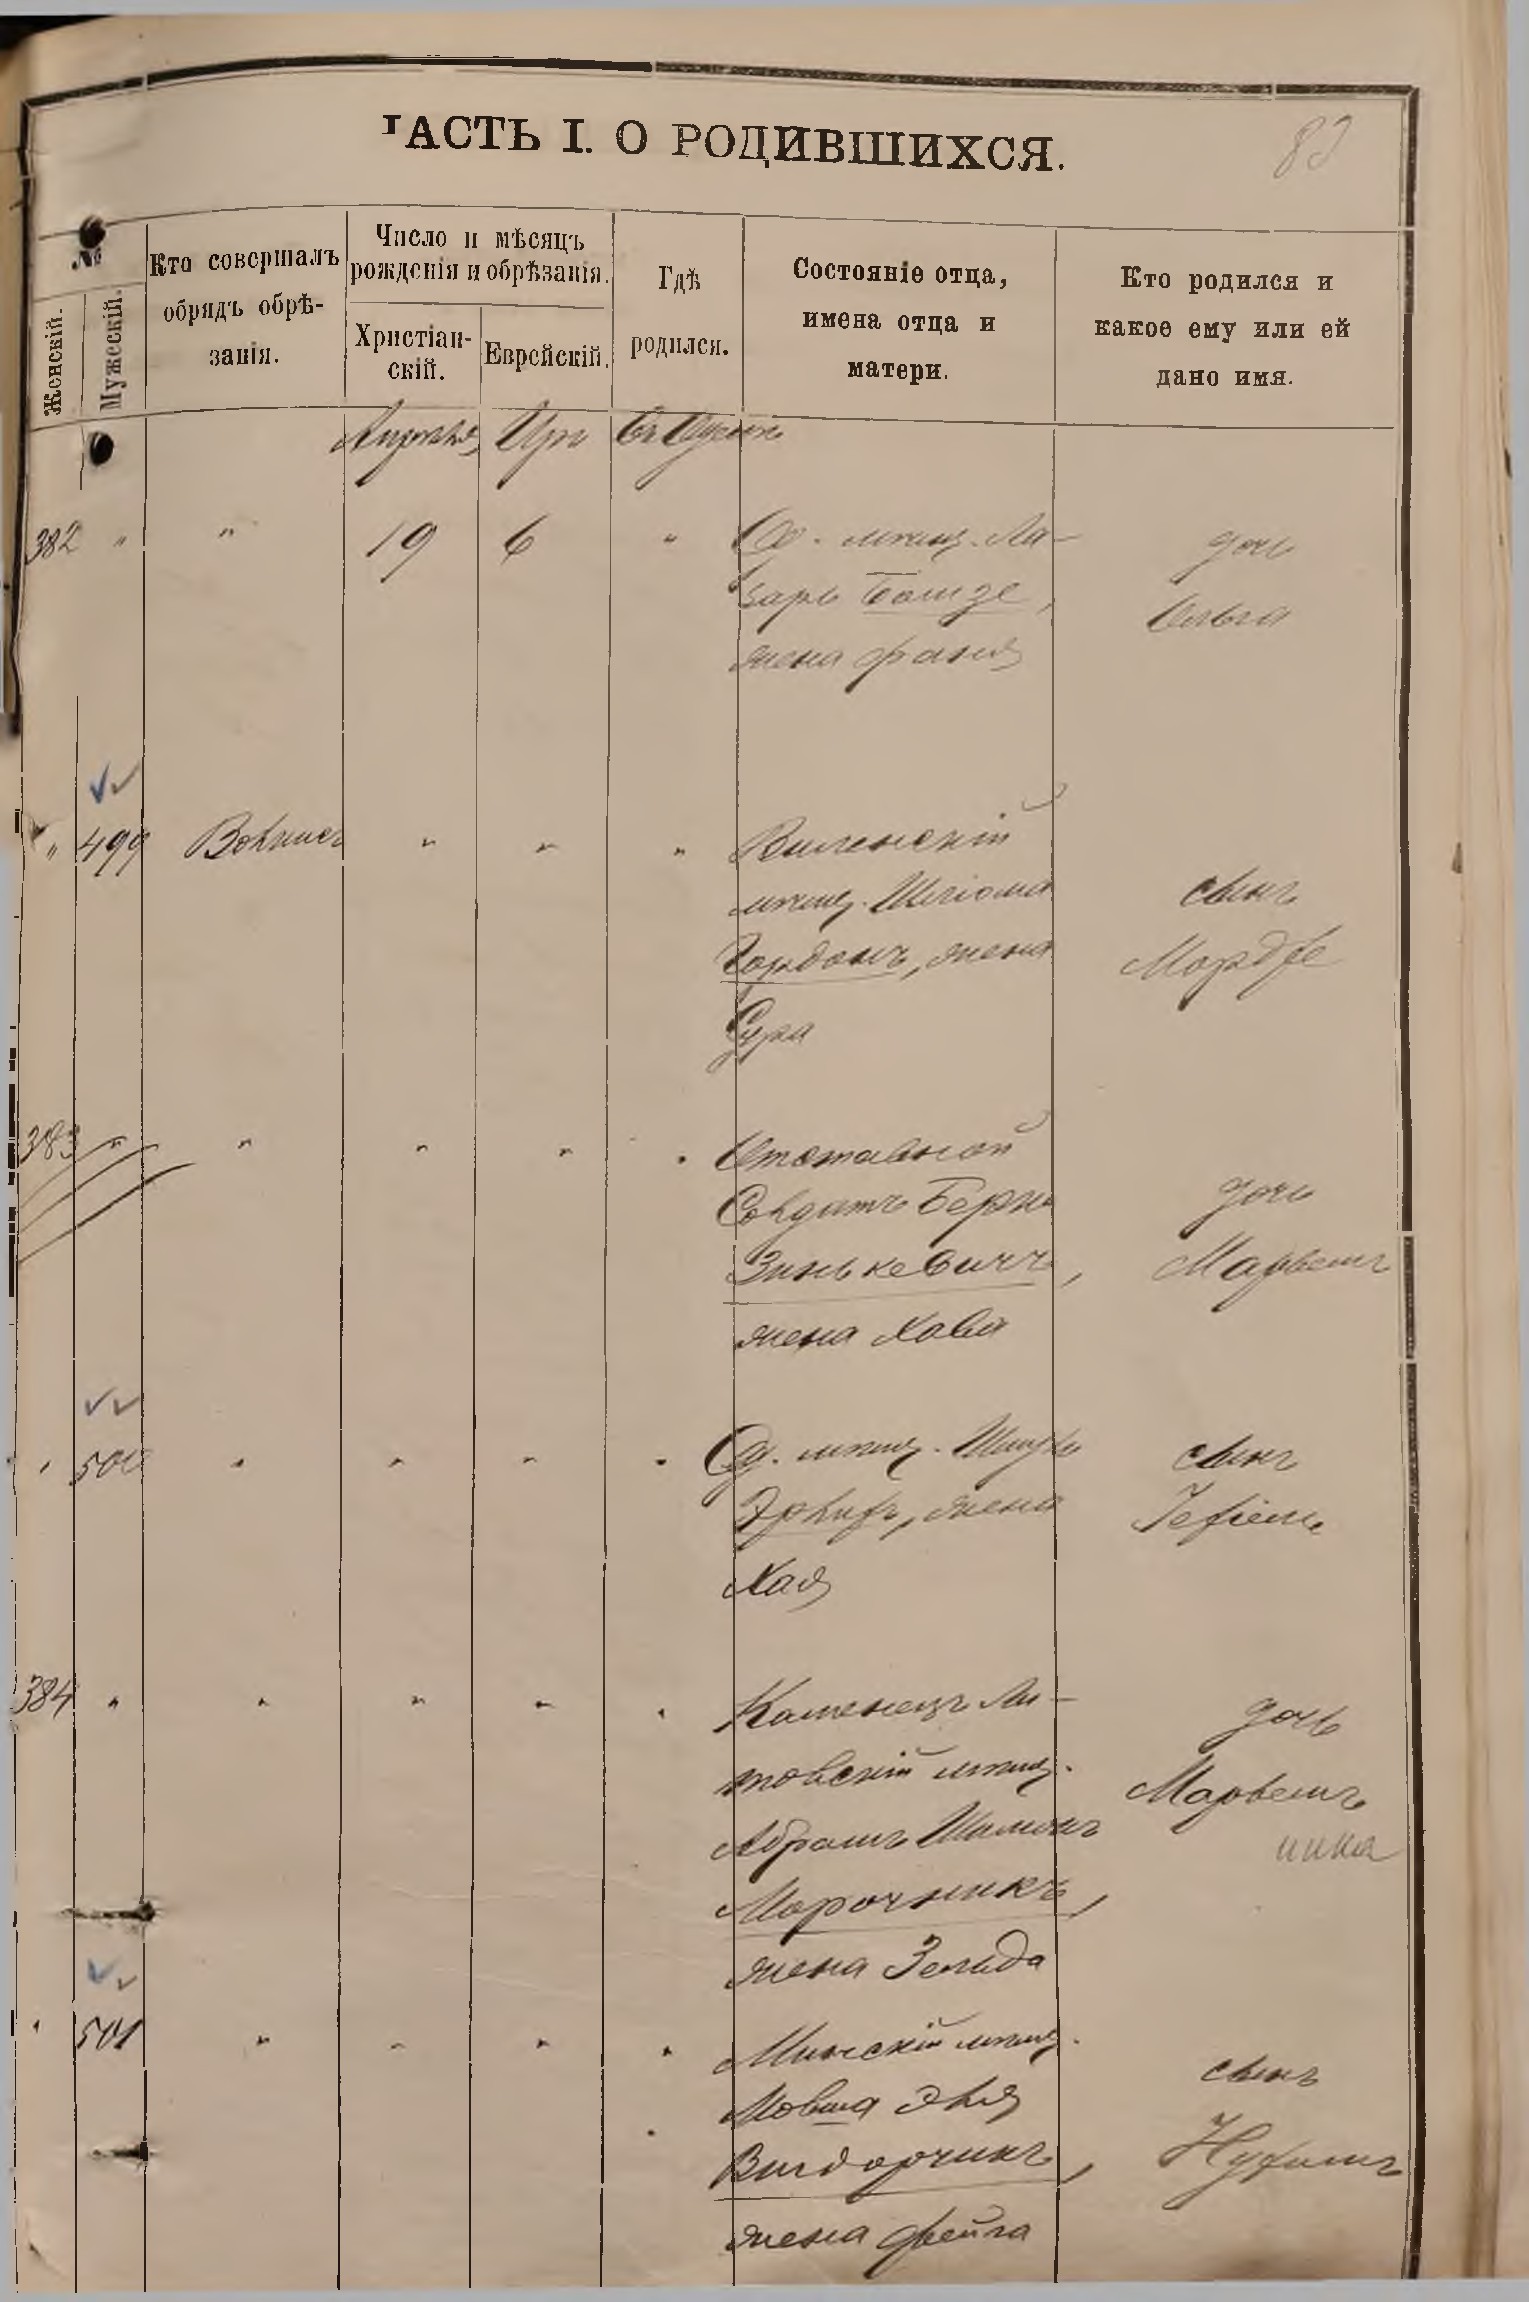 ЧАСТЬ I. О РОДИВШИХСЯ.
82
№
Женскій.
Мужескій.
Кто совершалъ
обрядъ обрѣ-
занія.
Число и мѣсяцъ
рожденія и обрѣзанія.
Христіан-
скій.
Еврейскій.
Гдѣ
родился.
Состояніе отца,
имена отца и
матери.
Кто родился и
какое ему или ей
дано имя.
Апрѣля Иръ
382 " " 19 6 "
мѣщ. Ла-
зарь
жена Фаня
дочь
Ольга
" 499 " " "
Виленскій
мѣщ. Шлiома
Гордонъ, жена
Сура
сынъ
Мордхе
383 " " " " "
Отставной
Солдатъ Берко
Зинькевичъ,
жена Хава
дочь
500 " " " "
мѣщ.
жена
Хая
сынъ
384 " " " " "
Каменецъ Ли-
товскій мѣщ.
Абрамъ Шимонъ
Марочникъ,
жена Зельда
дочь
501 " " " "
Минскій мѣщ.
Мовша Эля
Вигдорчикъ,
жена Фейга
сынъ
Нухимъ